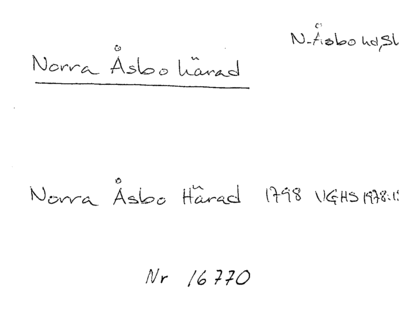 N-Åsbo hd, Sk
Norra Åsbo härad
Norra Åsbo Härad 1798 VGHS 1978:1
Nr 16770